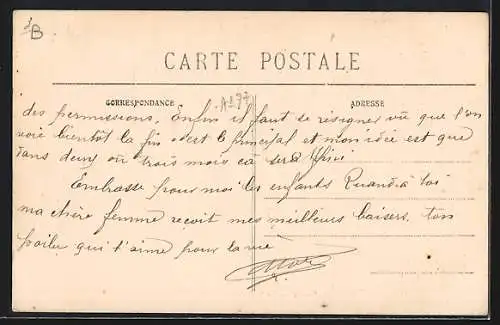 1B
CARTE POSTALE
CORRESPONDANCE
A197
ADRESSE
des permissions. Enfin il faut se résigner vu que l'on
voie bientôt la fin c'est le principal et mon idée est que
dans deux ou trois mois ça sera fini
Embrasse pour moi les enfants Quand à toi
ma chère femme reçoit mes meilleurs baisers. ton
poilu qui t'aime pour la vie